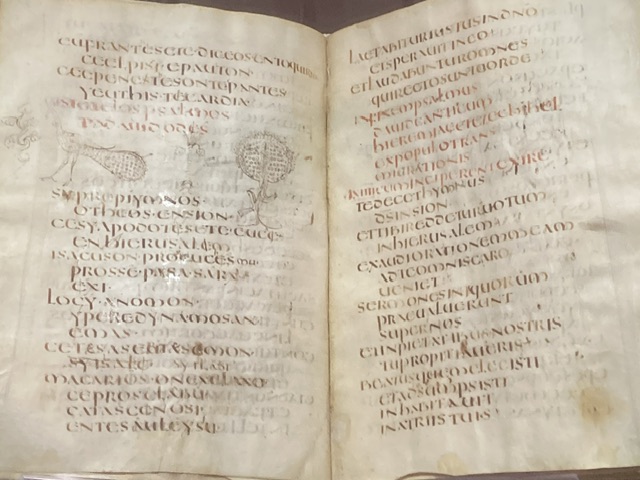 EUFRANTESETE·DICEOS·ENTOQUIRIO
CEELPISI·EPAUTON
CEEPENETESONTEPANTES
YEUTHIS·TECARDIA
PSALMOS
DAUIDODES
SYPREPIYMNOS·
OTHEOS·ENSION·
CESYAPODOTESETEEUCE
ENHIERUSALEM
ISACUSON·PROSEUCESMU·
PROSSE·PASA·SARX
EXI·
LOGY·ANOMON·
YPEREDYNAMOSAN
EMAS·
CETESASEBIASEMON·
MACARIOS·ONEXELEXO
CEPROSELABU
CATASCENOSI
LAETABITURIUSTUSINDNO
ETSPERAUITINEO
ETLAUDABUNTUROMNES
QUIRECTOSUNTCORDE
INFINEMPSALMUS
DAUIDCANTICUM
HIEREMIAEETEZECHIHEL
EXPOPULOTRANS
MIGRATIONIS
CUMINCIPERENTEXIRE
TEDECETHYMNUS
DSINSION
ETTIBIREDDETURUOTUM
INHIERUSALEM
EXAUDIORATIONEMMEAM
ADTEOMNISCARO
UENIET
SERMONESINIQUORUM
PRAEUALUERUNT
SUPERNOS
ETINPIETATIBUSNOSTRIS
TUPROPITIAUERIS
BEATUSQUEMELEGISTI
ETADSUMPSISTI
INHABITAUIT
INATRIISTUIS